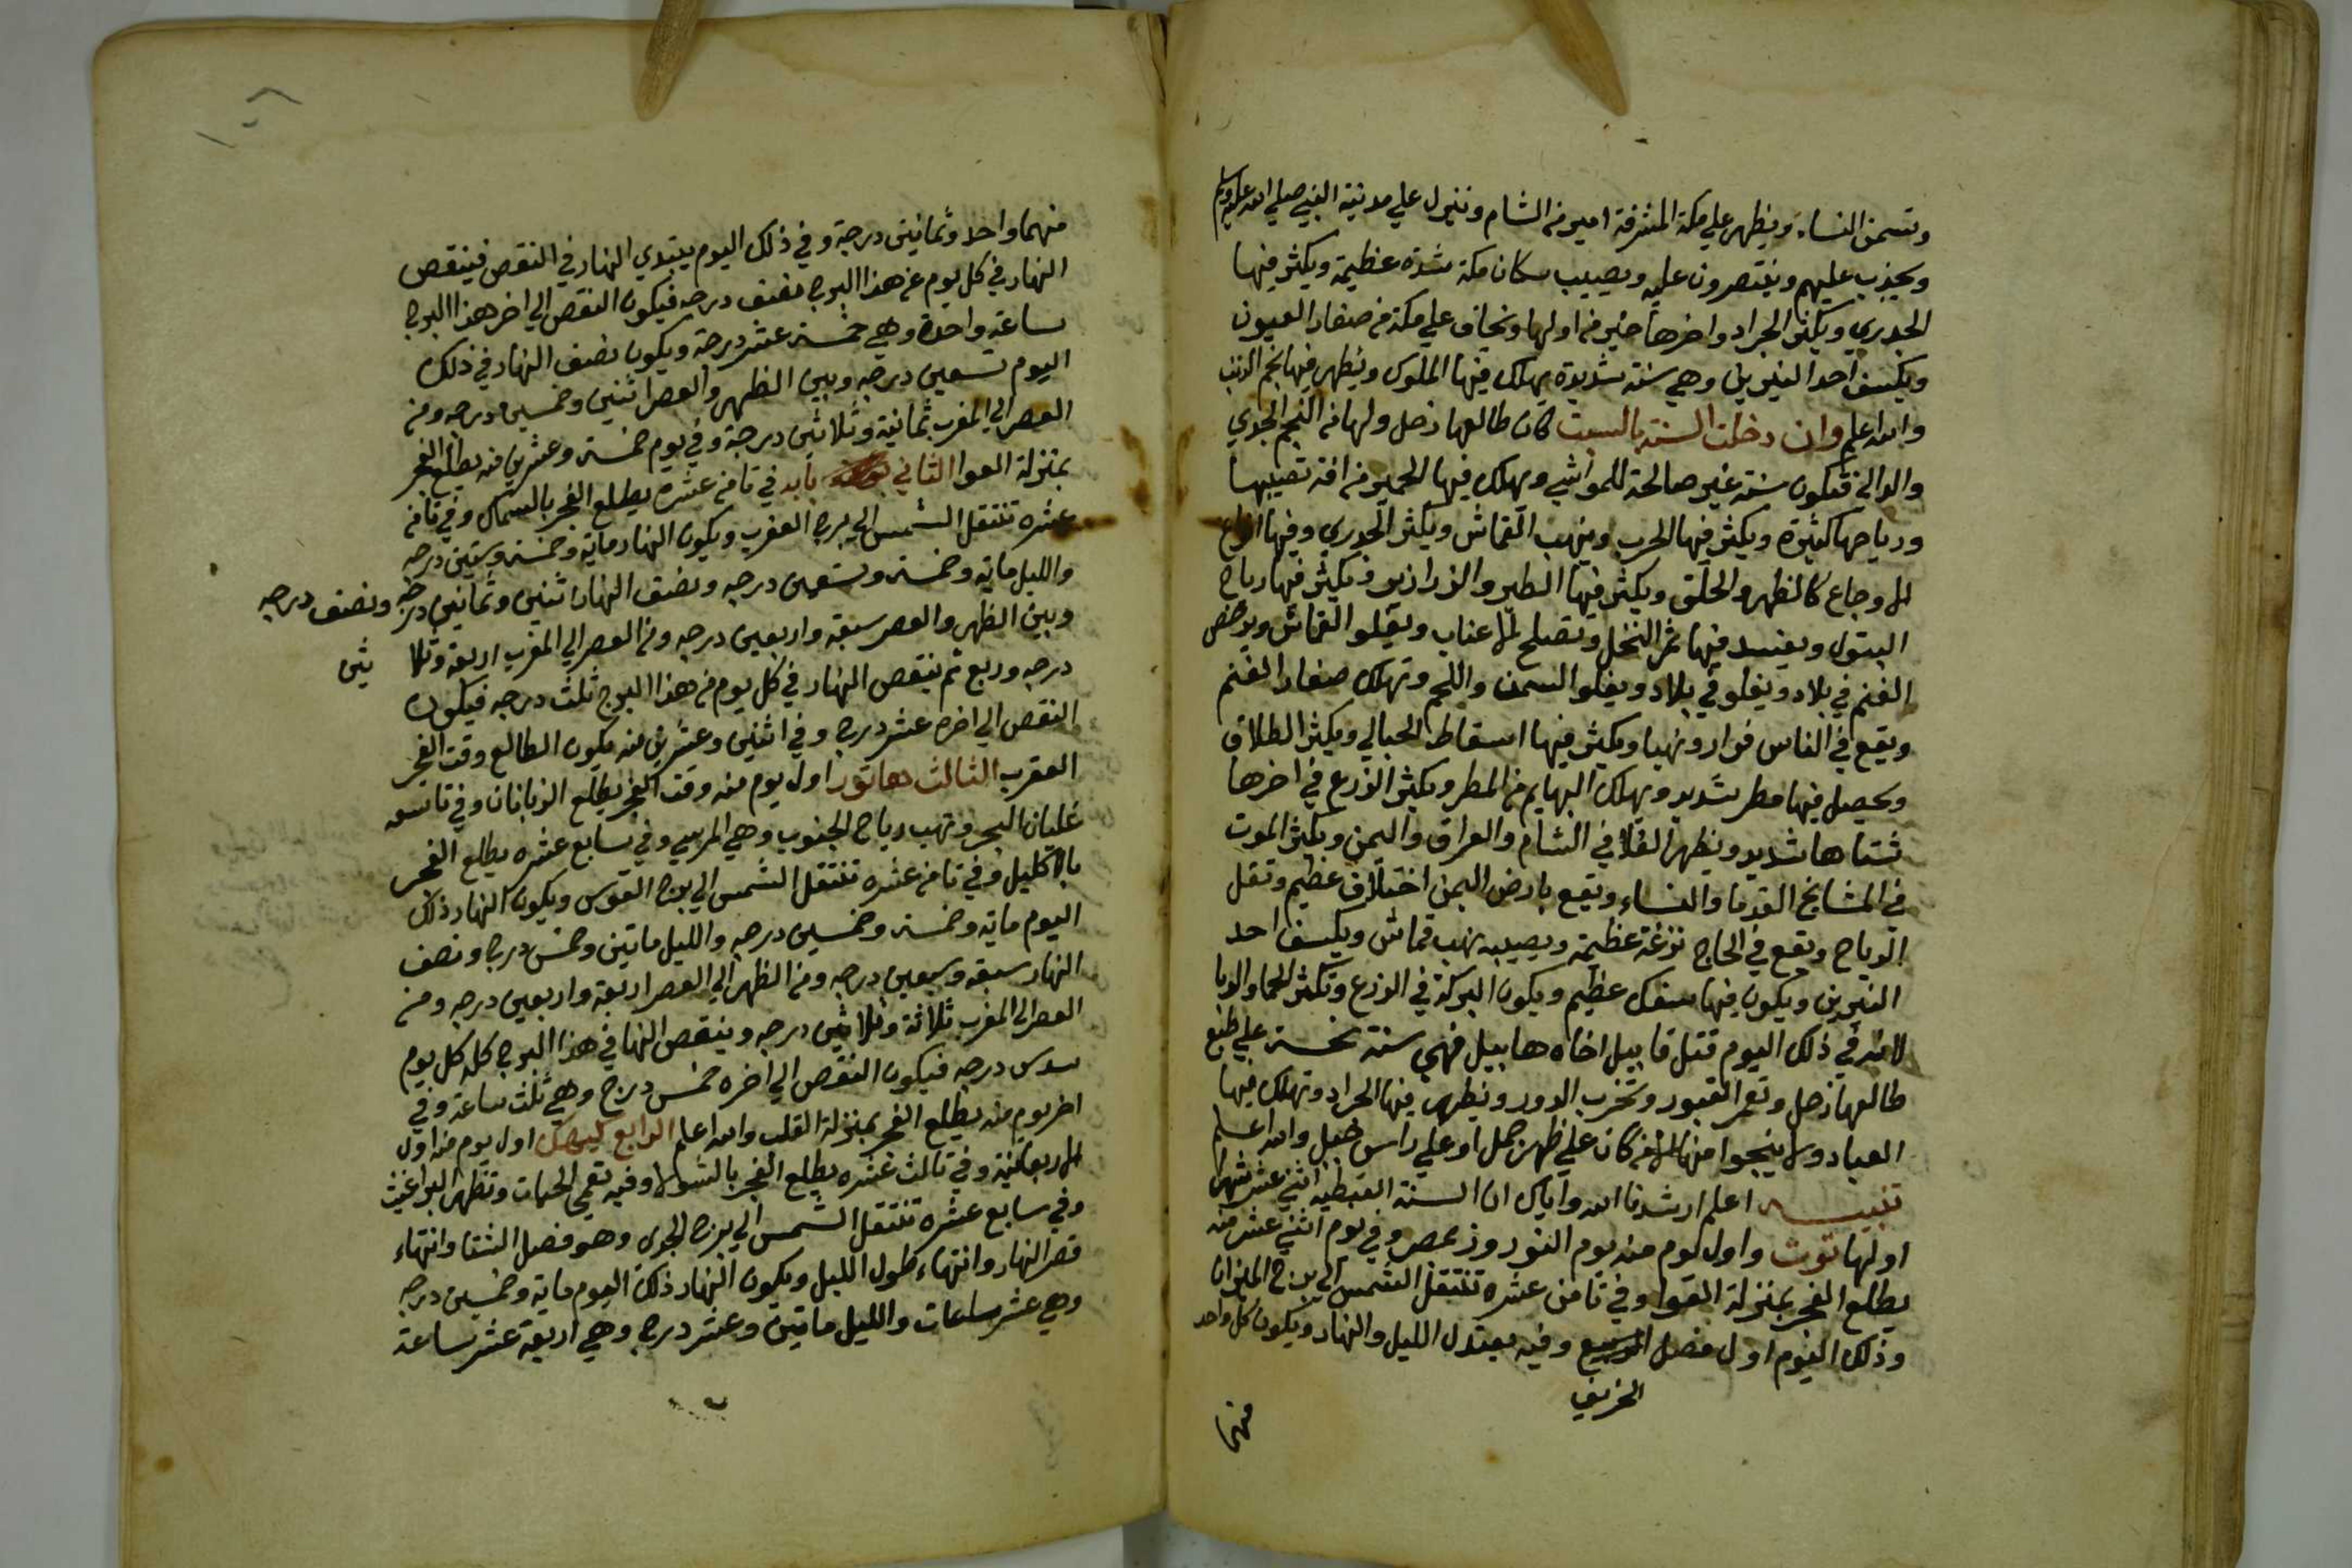 وتسمن النساء ويظهر علي مكة المشرفة امير من الشام وينزل علي مدينة النبي صلي الله عليه وسلم
ويحزب عليهم وينتصرون عليه ويصيب سكان مكة شدة عظيمة ويكثر فيها
الجدري ويكثر الجراد واخرها خير من اولها ويخاف علي مكة من صغار العيون
ويكسف احد النيرين وهي سنة شديدة يهلك فيها الملوك ويظهر فيها نجم الذنب
والله اعلم وان دخلت السنة بالسبت كان طالعها زحل ولها من النجم الجدي
والدالي فتكون سنة غير صالحة للمواشي ويهلك فيها الحمير من افة تصيبها
ورياحها كثيرة ويكثر فيها الحرب وينهب القماش ويكثر الجدري وفيها انواع
الاوجاع كالظهر والحلق ويكثر فيها الطير والزرازير ويكثر فيها رياح
البتول ويفسد فيها ثمر النخل وتصلح الاعناب ويغلو القماش ويرخص
الغنم في بلاد ويغلو في بلاد ويغلو السمن واللحم وتهلك صغار الغنم
ويقع في الناس فرار ونهبا ويكثر فيها اسقاط الحبالي ويكثر الطلاق
ويحصل فيها مطر شديد ويهلك البهايم من المطر ويكثر الزرع في اخرها
شتاها شديد ويظهر الغلا في الشام والعراق واليمن ويكثر الموت
في المشايخ القدما والنساء ويقع بارض اليمن اختلاف عظيم وتقل
الرياح ويقع في الحاج نزغة عظيمة ويصيبه نهب قماش ويكسف احد
النيرين ويكون فيها سفك عظيم ويكون البركة في الزرع وتكثر الحما والوبا
لانه في ذلك اليوم قتل قابيل اخاه هابيل فهي سنة نحسة علي طبع
طالعها زحل وتعمر القبور وتخرب الدور ويظهر فيها الجراد وتهلك فيها
العباد ولا ينجوا منها الا من كان علي ظهر جمل او علي راس جبل والله اعلم
تنبيه اعلم ارشدنا الله واياك ان السنة القبطية اثني عشر شهرا
اولها توت واول يوم منه يوم النوروز بمصر وفي يوم اثني عشر منه
يطلع الفجر بمنزلة العوا وفي ثامن عشره تنتقل الشمس الي برج الميزان
وذلك اليوم اول فصل الربيع وفيه يعتدل الليل والنهار ويكون كل واحد
الخريف
منهما
منهما واحد وثمانين درجة وفي ذلك اليوم يبتدي النهار في النقص فينقص
النهار في كل يوم من هذا البرج نصف درجه فيكون النقص الي اخر هذا البرج
ساعة واحدة وهي خمسة عشر درجة ويكون نصف النهار في ذلك
اليوم تسعين درجه وبين الظهر والعصر اثنين وخمسين درجه ومن
العصر الي المغرب ثمانية وثلاثين درجة وفي يوم خمسة وعشرين منه يطلع الفجر
بمنزلة العوا الثاني بابه في ثامن عشره يطلع الفجر بالسماك وفي ثامن
عشره تنتقل الشمس الي برج العقرب ويكون النهار ماية وخمسة وستين درجه
والليل ماية وخمسة وتسعين درجه ونصف النهار اثنين وثمانين درجه ونصف درجه
وبين الظهر والعصر سبعة واربعين درجه ومن العصر الي المغرب اربعة وثلا ثين
درجه وربع ثم ينقص النهار في كل يوم من هذا البرج ثلث درجه فيكون
النقص الي اخره عشر درج وفي اثنين وعشرين منه يكون الطالع وقت الفجر
العقرب الثالث هاتور اول يوم منه وقت الفجر يطلع الزبانان وفي تاسعه
غليان البحر وتهب رياح الجنوب وهي المريسي وفي سابع عشره يطلع الفجر
بالاكليل وفي ثامن عشره تنتقل الشمس الي برج القوس ويكون النهار ذلك
اليوم ماية وخمسة وخمسين درجه والليل ماتين وخمس درج ونصف
النهار سبعة وسبعين درجه ومن الظهر الي العصر اربعة واربعين درجه ومن
العصر الي المغرب ثلاثة وثلاثين درجه وينقص النها في هذا البرج كله كل يوم
سدس درجه فيكون النقص الي اخره خمس درج وهي ثلث ساعة وفي
اخر يوم منه يطلع الفجر بمنزلة القلب والله اعلم الرابع كيهك اول يوم منه اول
الاربعانية وفي ثالث عشره يطلع الفجر بالشولا وفيه تعمي الحيات وتظهر البراغيث
وفي سابع عشره تنتقل الشمس الي برج الجدي وهو فصل الشتا وانتهاء
قصر النهار وانتهاء طول الليل ويكون النهار ذلك اليوم ماية وخمسين درجه
وهي عشر ساعات والليل ماتين وعشر درج وهي اربعة عشر ساعة